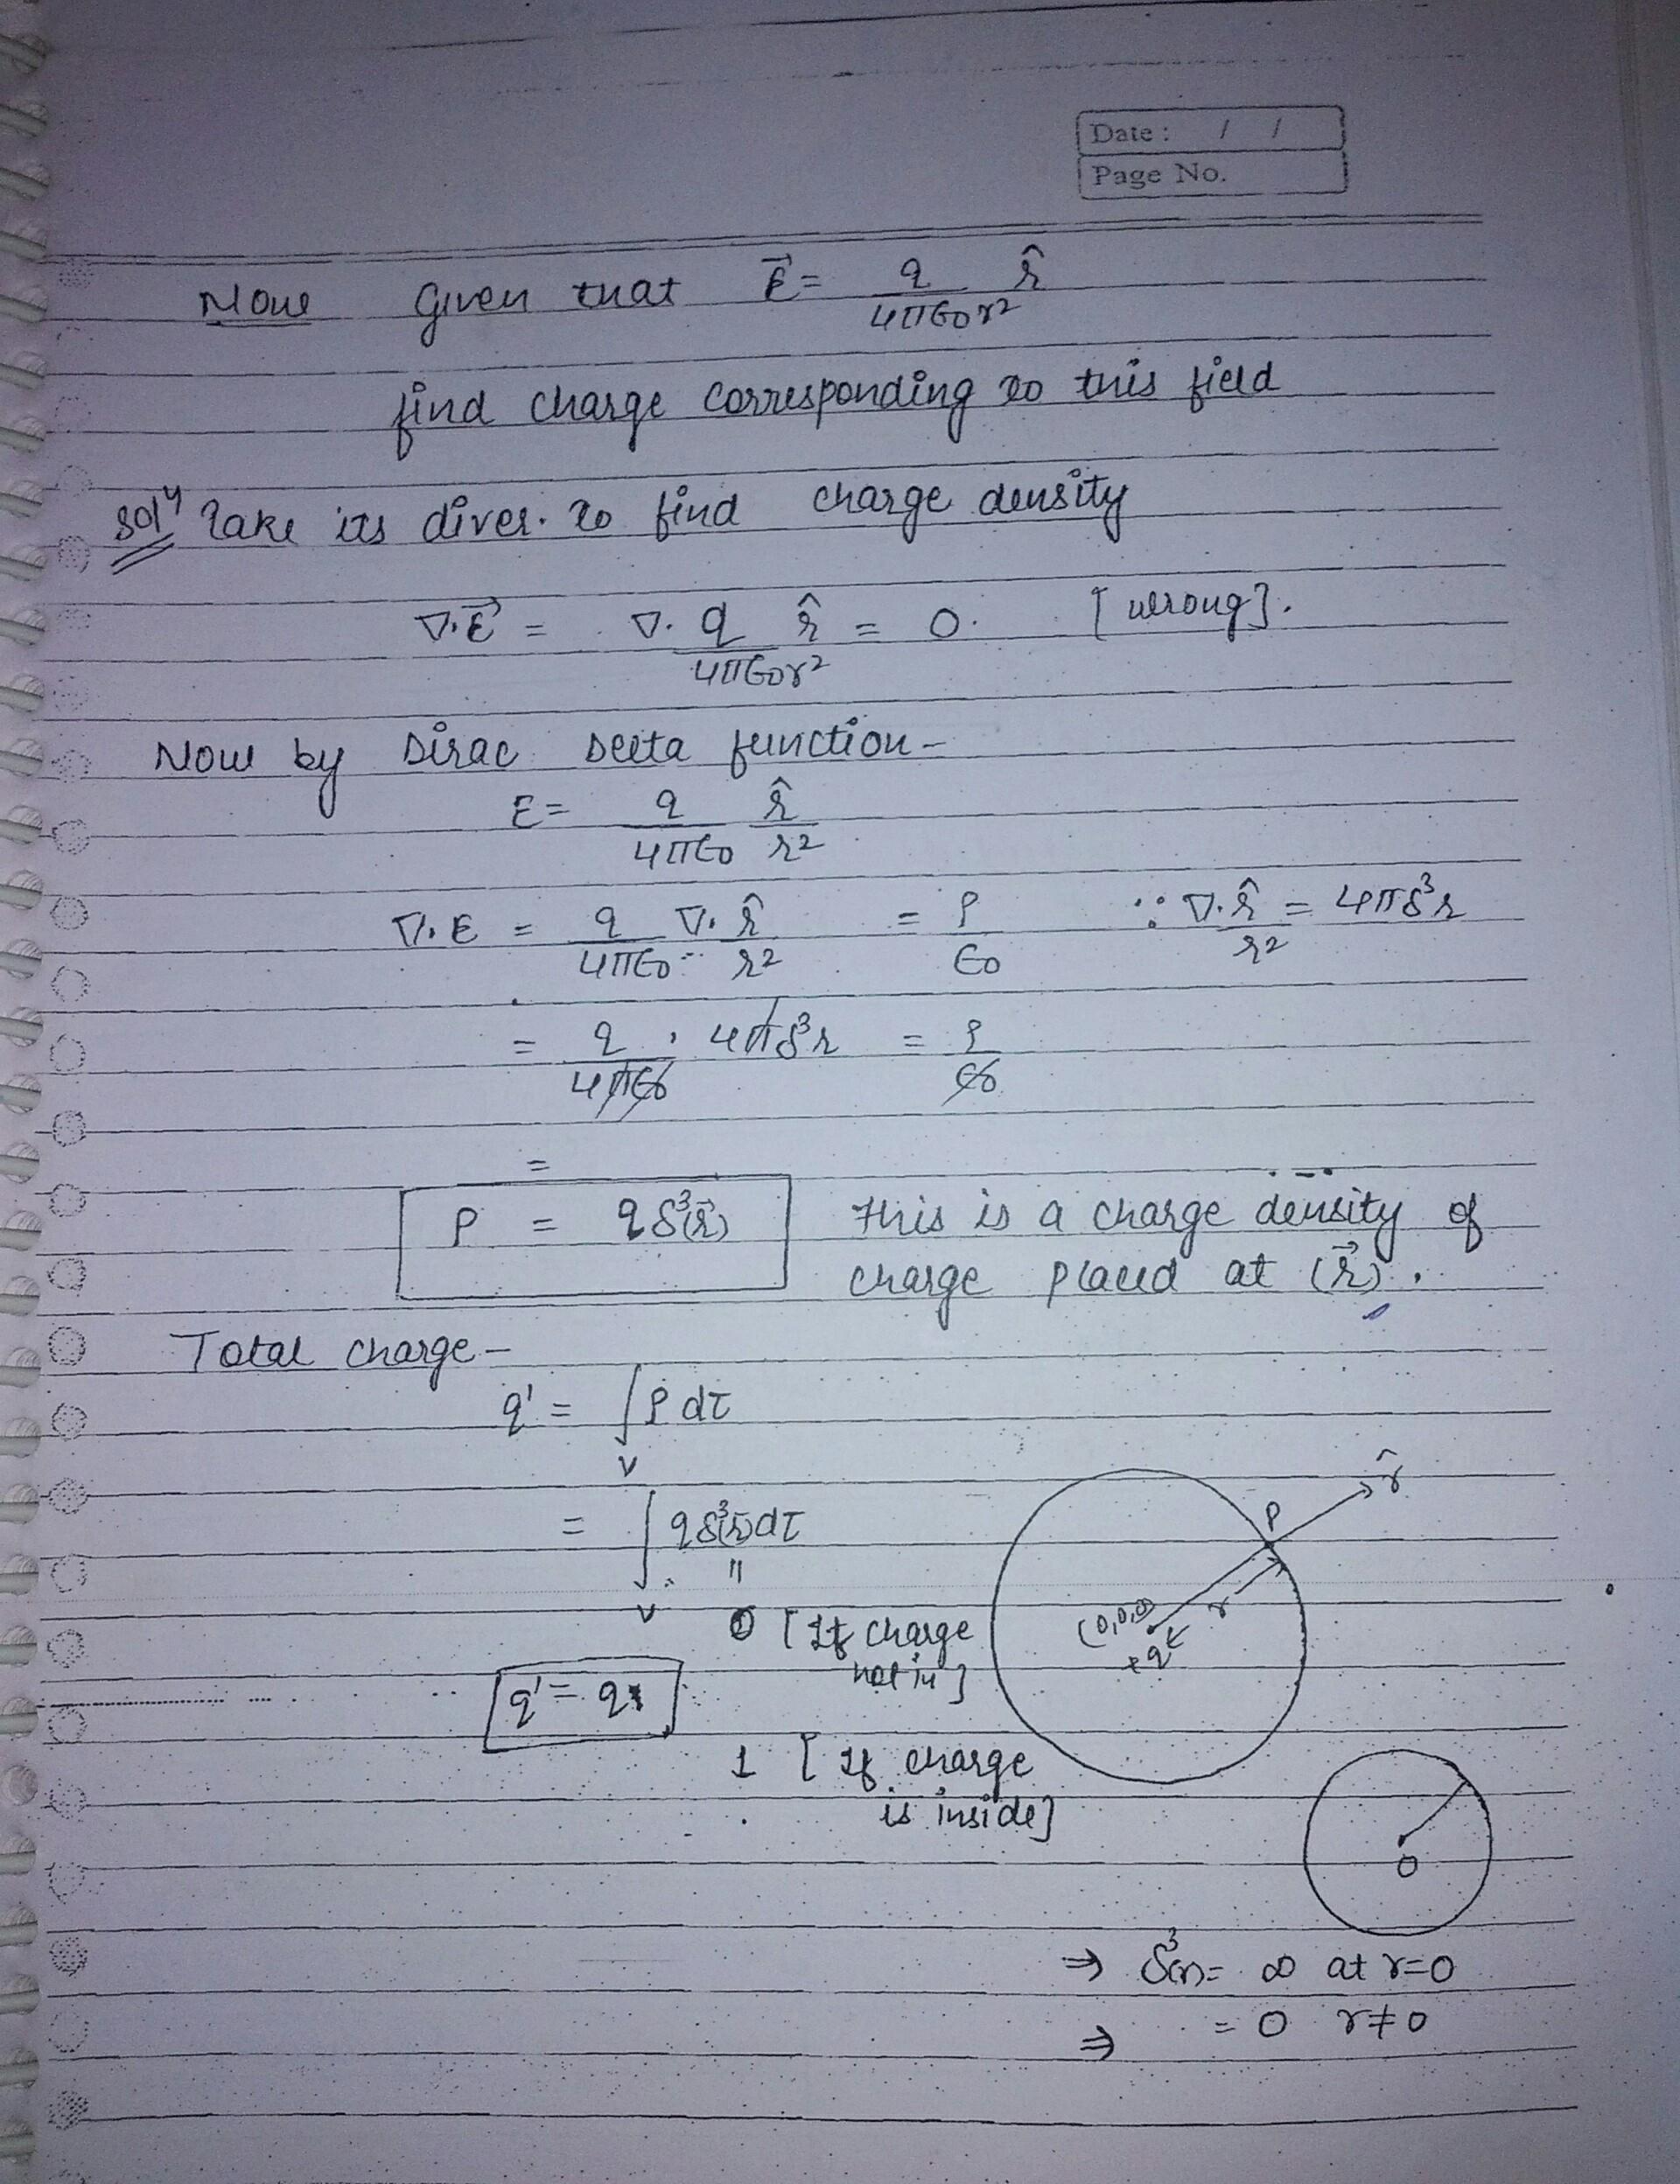 Date : / /
Page No.
Now Given that E⃗ = q/4π∈₀r² r̂
find charge corresponding to this field
Solⁿ Take its diver. to find charge density
∇.E⃗ = ∇. q/4π∈₀r² r̂ = 0. [wrong].
Now by Dirac Delta function -
E = q/4π∈₀ r̂/r²
∇.E = q/4π∈₀ ∇. r̂/r² = ρ/∈₀ ∵ ∇. r̂/r² = 4πδ³r
= q/4π∈₀ . 4πδ³r = ρ/∈₀
=
ρ = qδ³(r⃗) This is a charge density of
charge placed at (r⃗).
Total charge -
q' = ∫ᵥ ρ dτ
= ∫ᵥ qδ³(r)dτ
"
0 [If charge
not in]
q' = q
1 [If charge
is inside]
r̂
P
r
(0,0,0)
+q
O
⇒ δ³(r) = ∞ at r=0
⇒ = 0 r≠0